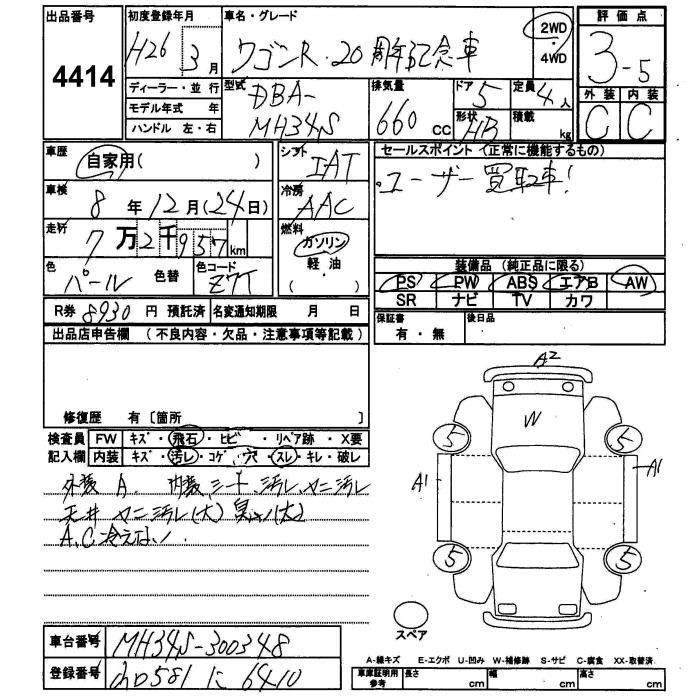 出品番号
4414
初度登録年月
H26 3月
車名・グレード
ワゴンR・20周年記念車
2WD
・
4WD
評価点
3-5
外装 内装
C C
ディーラー・並行
モデル年式 年
ハンドル 左・右
型式
DBA-
MH34S
排気量
660 cc
ドア 5
形状 HB
定員 4人
積載 kg
車歴
自家用( )
車検 8年12月(24日)
走行 7万2千957km
色 パール 色替
色コード Z7T
シフト IAT
冷房 AAC
燃料
ガソリン
軽油
( )
セールスポイント(正常に機能するもの)
・ユーザー買取車!
装備品(純正品に限る)
PS PW ABS エアB AW
SR ナビ TV カワ
R券 8930円 預託済
名変通知期限 月 日
保証書
有・無
後日品
出品店申告欄(不良内容・欠品・注意事項等記載)
修復歴 有〔箇所 〕
検査員 FW キズ・飛石・ヒビ・リペア跡・X要
記入欄 内装 キズ・汚レ・コゲ・穴・スレ・キレ・破レ
外装A. 内装シート汚レ、ヤニ汚レ
天井ヤニ汚レ(大)臭い(大)
A.C冷えない
A2
W
5 5
A1 A1
5 5
スペア
車台番号 MH34S-300348
登録番号 581 に 6410
A-線キズ E-エクボ U-凹み W-補修跡 S-サビ C-腐食 XX-取替済
車庫証明用
参考
長さ cm 幅 cm 高さ cm